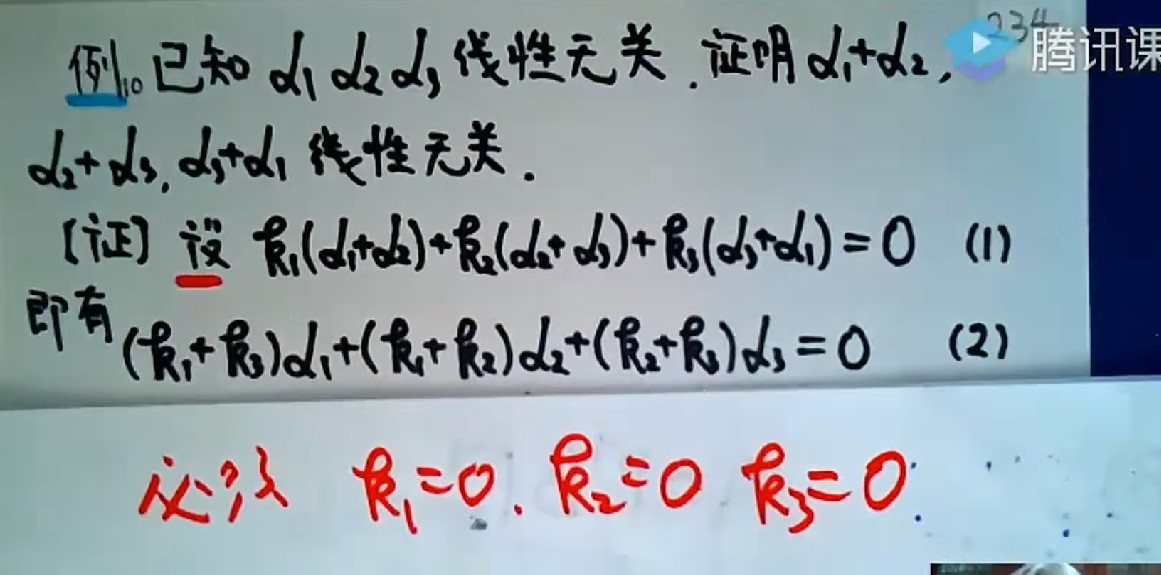 234
腾讯课
例10 已知 α₁ α₂ α₃ 线性无关. 证明 α₁+α₂,
α₂+α₃, α₃+α₁ 线性无关.
[证] 设 k₁(α₁+α₂)+k₂(α₂+α₃)+k₃(α₃+α₁)=0 (1)
即有 (k₁+k₃)α₁+(k₁+k₂)α₂+(k₂+k₃)α₃=0 (2)
必须 k₁=0. k₂=0 k₃=0.